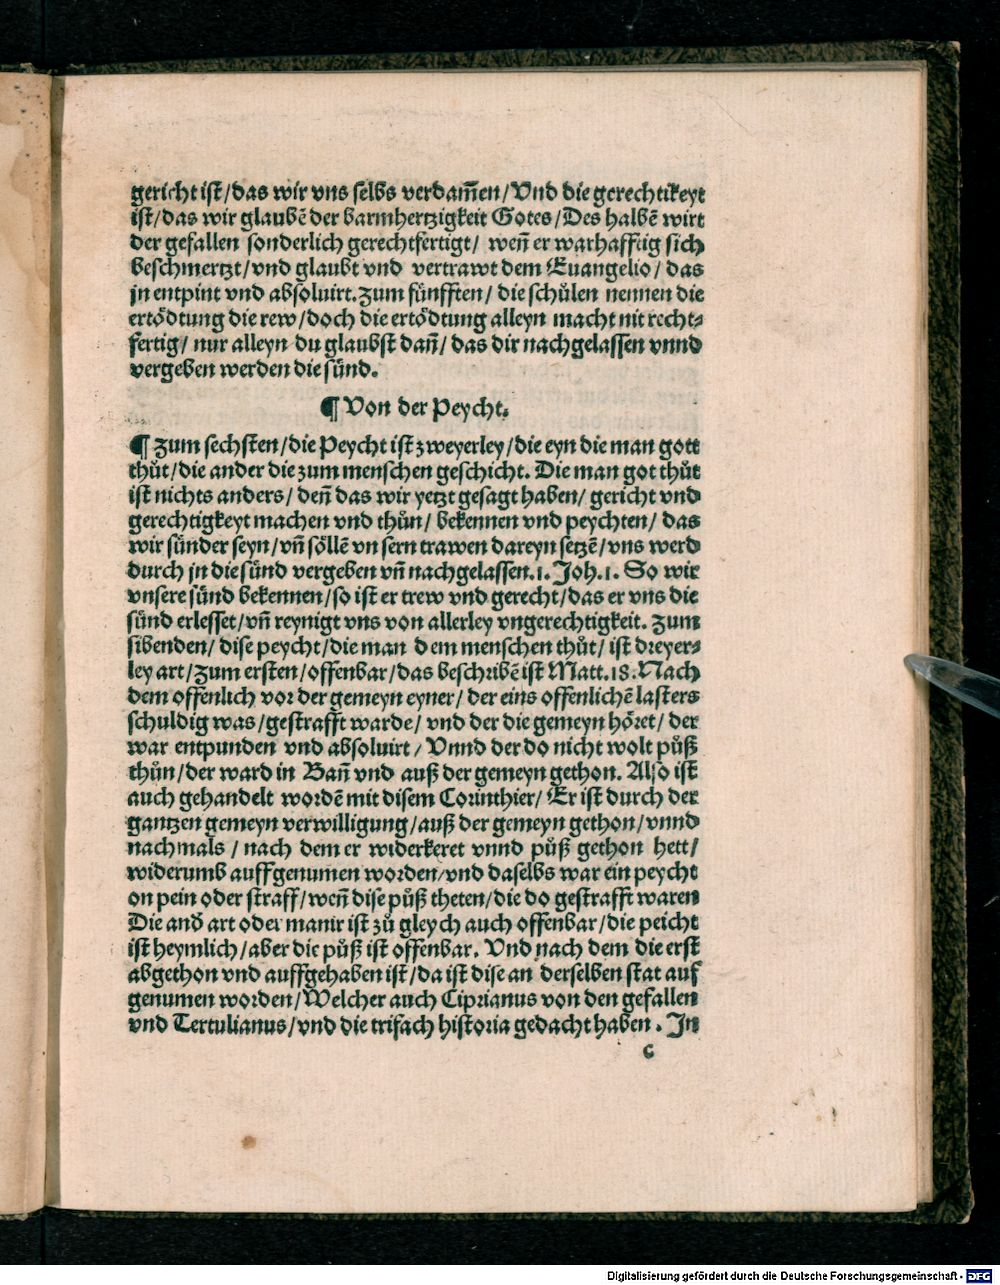 gericht ist/das wir vns selbs verdam̄en/Vnd die gerechtikeyt
ist/das wir glaubē der barmhertzigkeit Gotes/Des halbē wirt
der gefallen sonderlich gerechtfertigt/ weñ er warhafftig sich
beschmertzt/vnd glaubt vnd vertrawt dem Euangelio/ das
jn entpint vnd absoluirt. Zum fünfften/ die schůlen nennen die
ertödtung die rew/doch die ertödtung alleyn macht nit recht⸗
fertig/ nur alleyn du glaubst dañ/ das dir nachgelassen vnnd
vergeben werden die sünd.
¶ Von der Peycht.
¶ Zum sechsten/die Peycht ist zweyerley/die eyn die man gott
thůt/die ander die zum menschen geschicht. Die man got thůt
ist nichts anders/ deñ das wir yetzt gesagt haben/ gericht vnd
gerechtigkeyt machen vnd thůn/ bekennen vnd peychten/ das
wir sünder seyn/vñ söllē vn sern trawen dareyn setzē/vns werd
durch jn die sünd vergeben vñ nachgelassen.1. Joh.1. So wir
vnsere sünd bekennen/so ist er trew vnd gerecht/das er vns die
sünd erlesset/vñ reynigt vns von allerley vngerechtigkeit. Zum
sibenden/ dise peycht/die man dem menschen thůt/ ist dreyer⸗
ley art/Zum ersten/offenbar/das beschribē ist Matt.18. Nach
dem offenlich vor der gemeyn eyner/ der eins offenlichē lasters
schuldig was/gestrafft warde/ vnd der die gemeyn höret/ der
war entpunden vnd absoluirt/Vnnd der do nicht wolt půß
thůn/der ward in Bañ vnd auß der gemeyn gethon. Also ist
auch gehandelt wordē mit disem Corinthier/ Er ist durch der
gantzen gemeyn verwilligung/auß der gemeyn gethon/vnnd
nachmals / nach dem er widerkeret vnnd půß gethon hett/
widerumb auffgenumen worden/vnd daselbs war ein peycht
on pein oder straff/weñ dise půß theten/die do gestrafft waren
Die and̄ art oder manir ist zů gleych auch offenbar/die peicht
ist heymlich/aber die půß ist offenbar. Vnd nach dem die erst
abgethon vnd auffgehaben ist/da ist dise an derselben stat auf
genumen worden/Welcher auch Ciprianus von den gefallen
vnd Tertulianus/vnd die trifach historia gedacht haben. In
c
Digitalisierung gefördert durch die Deutsche Forschungsgemeinschaft - DFG